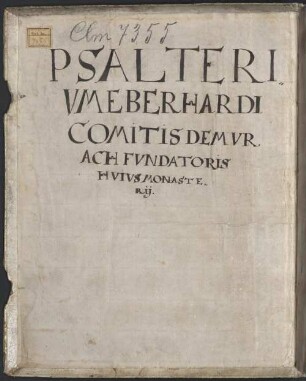 Clm 7355
PSALTERI.
VMEBERHARDI
COMITISDEMVR.
ACH FVNDATORIS
HVIVSMONASTE.
Rij.